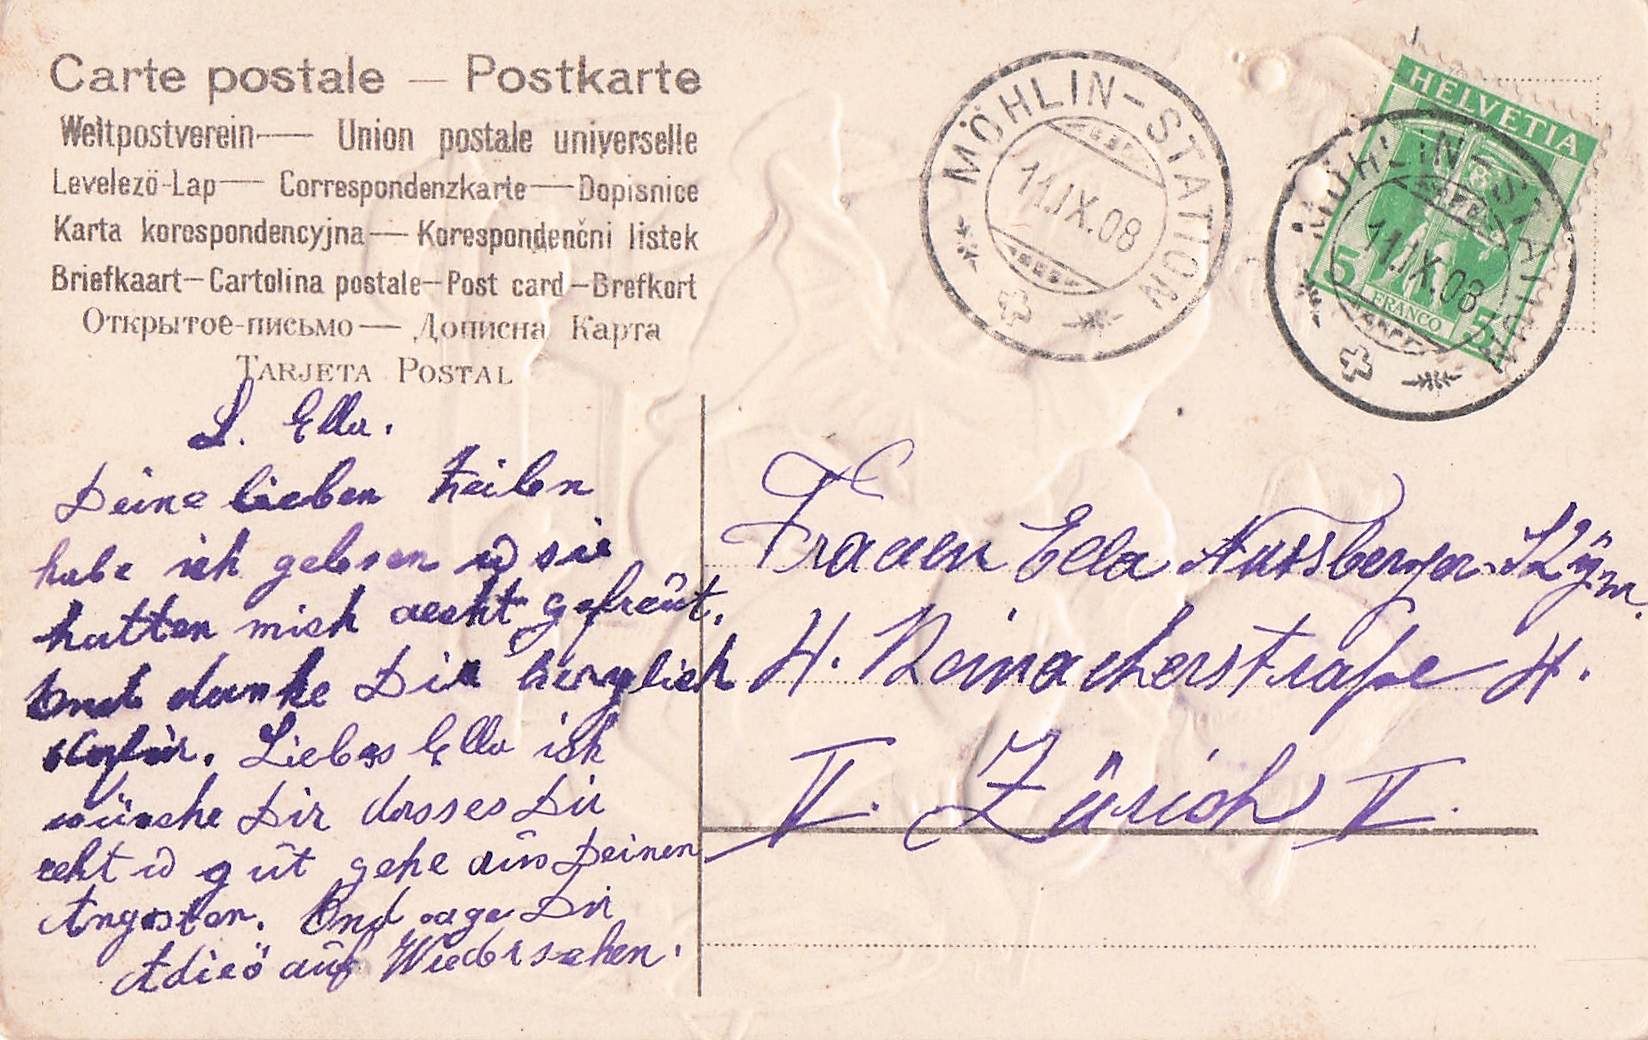 Carte postale — Postkarte
Weltpostverein — Union postale universelle
Levelező-Lap — Correspondenzkarte — Dopisnice
Karta korespondencyjna — Korespondenční listek
Briefkaart — Cartolina postale — Post card — Brefkort
Открытое-письмо — Дописна Карта
TARJETA POSTAL
MÖHLIN-STATION
11.IX.08
HELVETIA
5 FRANCO 5
MÖHLIN-STATION
11.IX.08
L. Ella.
Deine lieben Zeilen
habe ich gelesen u sie
hatten mich recht gefreût.
Und danke Dir herzlich
dafür. Liebes Ella ich
wünsche Dir dasses Dir
reht u gût gehe aûs Deinen
Angosten. Und sage Dir
Adieö aûf Wiedersehen.
Frauen Ella Nussberger-Kÿm
4. Reinacherstraße 4.
V. Zürich V.